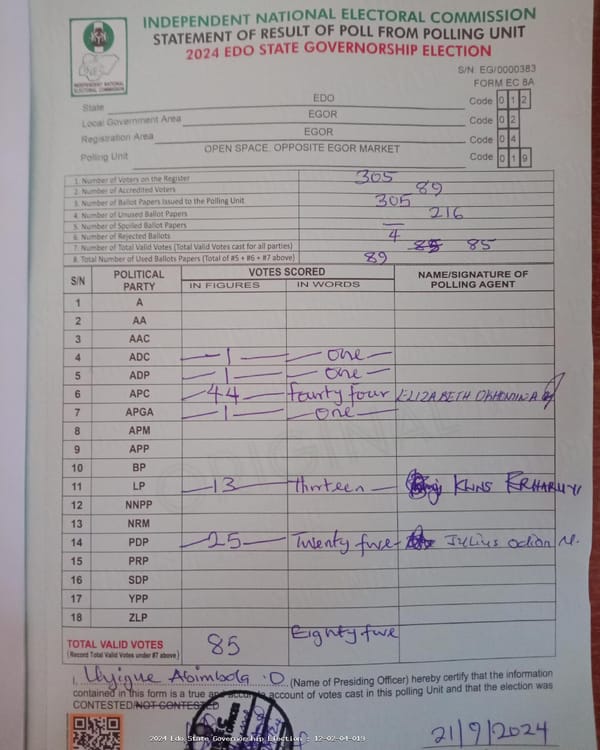 INDEPENDENT NATIONAL ELECTORAL COMMISSION
STATEMENT OF RESULT OF POLL FROM POLLING UNIT
2024 EDO STATE GOVERNORSHIP ELECTION
INDEPENDENT NATIONAL
ELECTORAL COMMISSION
S/N EG/0000383
FORM EC 8A
State EDO Code 0 1 2
Local Government Area EGOR Code 0 2
Registration Area EGOR Code 0 4
Polling Unit OPEN SPACE, OPPOSITE EGOR MARKET Code 0 1 9
1. Number of Voters on the Register 305
2. Number of Accredited Voters 89
3. Number of Ballot Papers Issued to the Polling Unit 305
4. Number of Unused Ballot Papers 216
5. Number of Spoiled Ballot Papers —
6. Number of Rejected Ballots 4
7. Number of Total Valid Votes (Total Valid Votes cast for all parties) 85
8. Total Number of Used Ballots Papers (Total of #5 + #6 + #7 above) 89
S/N POLITICAL PARTY VOTES SCORED NAME/SIGNATURE OF POLLING AGENT
IN FIGURES IN WORDS
1 A
2 AA
3 AAC
4 ADC 1 one
5 ADP 1 one
6 APC 44 fourty four ELIZABETH
7 APGA 1 one
8 APM
9 APP
10 BP
11 LP 13 thirteen
12 NNPP
13 NRM
14 PDP 25 Twenty five Julius Odion M.
15 PRP
16 SDP
17 YPP
18 ZLP
TOTAL VALID VOTES 85 Eighty five
(Record Total Valid Votes under #7 above)
I, Abimbola .O (Name of Presiding Officer) hereby certify that the information
contained in this form is a true and accurate account of votes cast in this polling Unit and that the election was
CONTESTED/NOT CONTESTED
21/9/2024
2024 Edo State Governorship Election : 12-02-04-019